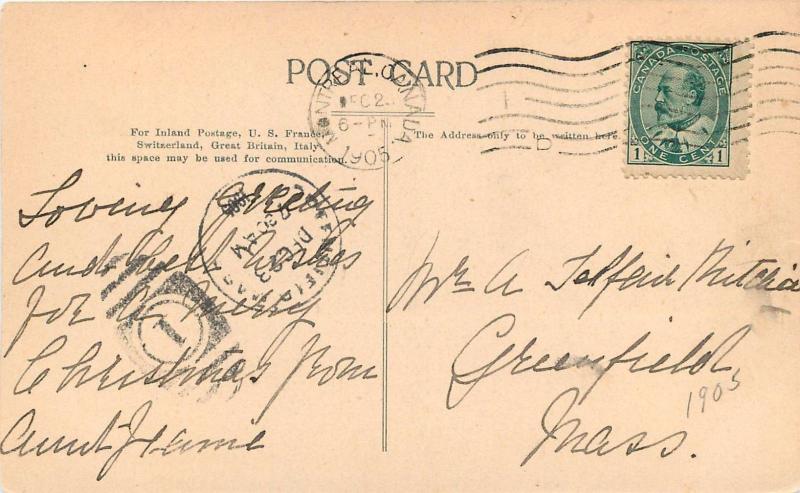 POST CARD
MONTREAL, CANADA
DEC 2
6-PM
1905
CANADA POSTAGE
1 ONE CENT 1
For Inland Postage, U. S. France,
Switzerland, Great Britain, Italy
this space may be used for communication.
The Address only to be written here.
GREENFIELD MASS
DEC 23
30 AM
1905
1
Loving Greeting
and best wishes
for a Merry
Christmas from
Aunt Jamie
Mr A Telfair Mitchia
Greenfield,
Mass.
1905